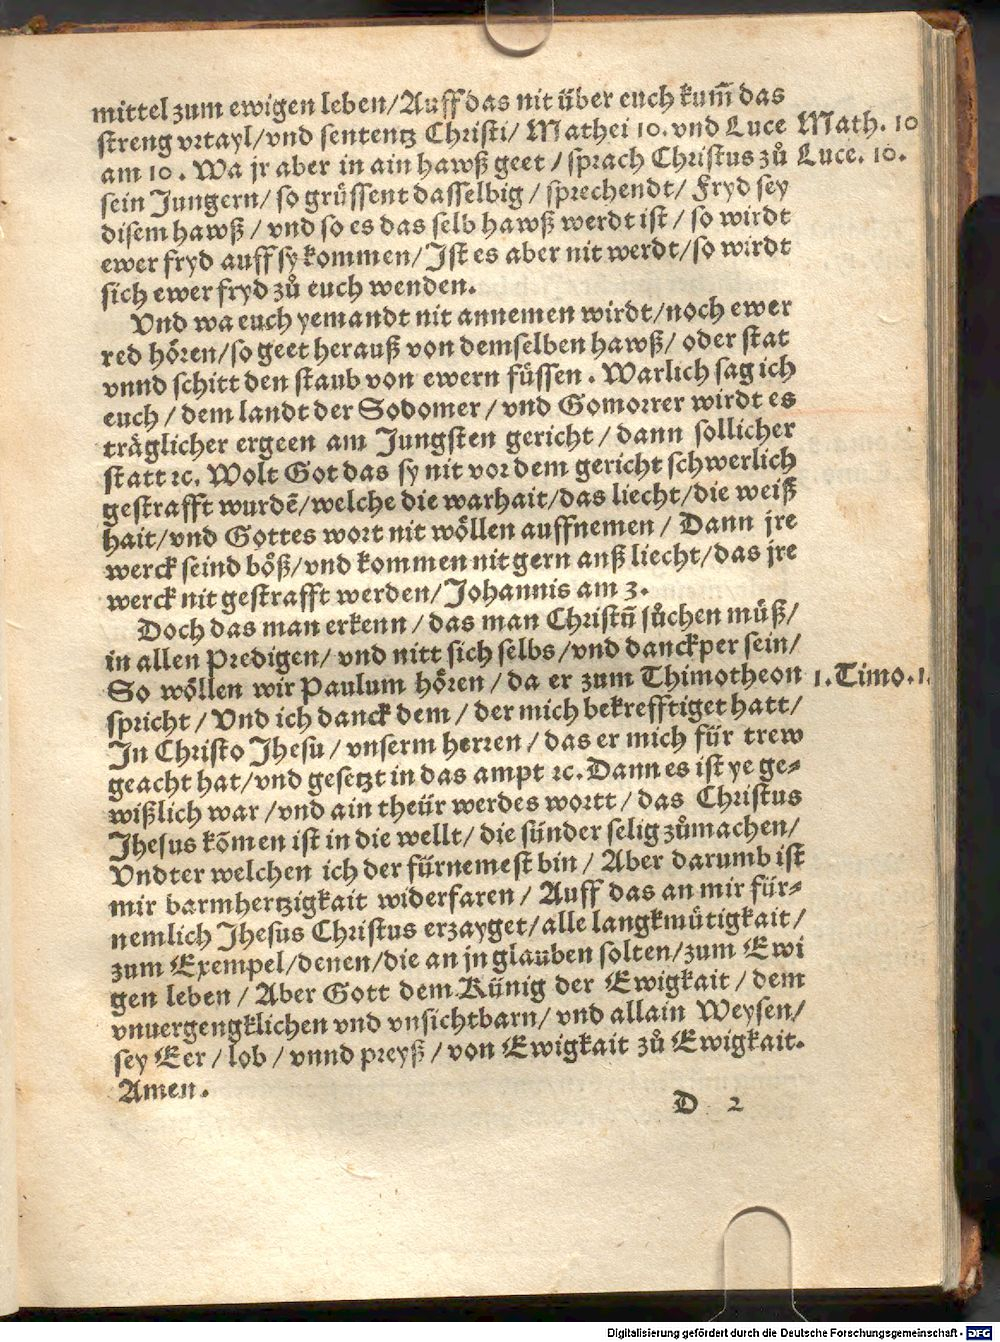 mittel zum ewigen leben/Auff das nit über euch kum̃ das
streng vrtayl/vnd sententz Christi/ Mathei 10. vnd Luce Math. 10
am 10. Wa jr aber in ain hawß geet / sprach Christus zů Luce. 10.
sein Jungern/ so grüssent dasselbig / sprechendt/ Fryd sey
disem hawß / vnd so es das selb hawß werdt ist / so wirdt
ewer fryd auff sy kommen/ Ist es aber nit werdt/so wirdt
sich ewer fryd zů euch wenden.
Vnd wa euch yemandt nit annemen wirdt/noch ewer
red hören/so geet herauß von demselben hawß/ oder stat
vnnd schitt den staub von ewern füssen. Warlich sag ich
euch / dem landt der Sodomer / vnd Gomorrer wirdt es
träglicher ergeen am Jungsten gericht / dann sollicher
statt ꝛc. Wolt Got das sy nit vor dem gericht schwerlich
gestrafft wurdē/welche die warhait/das liecht/die weiß
hait/vnd Gottes wort nit wöllen auffnemen / Dann jre
werck seind böß/vnd kommen nit gern anß liecht/das jre
werck nit gestrafft werden/ Johannis am 3.
Doch das man erkenn / das man Christū sůchen müß/
in allen Predigen/ vnd nitt sich selbs /vnd danckper sein/
So wöllen wir Paulum hören / da er zum Thimotheon 1. Timo. 1.
spricht / Vnd ich danck dem / der mich bekrefftiget hatt/
In Christo Jhesu / vnserm herren / das er mich für trew
geacht hat/vnd gesetzt in das ampt ꝛc. Dann es ist ye ge⸗
wißlich war /vnd ain theür werdes wortt / das Christus
Jhesus kōmen ist in die wellt/ die sünder selig zůmachen/
Vndter welchen ich der fürnemest bin / Aber darumb ist
mir barmhertzigkait widerfaren / Auff das an mir für⸗
nemlich Jhesus Christus erzayget/alle langkmütigkait/
zum Exempel/denen/die an jn glauben solten/zum Ewi
gen leben / Aber Gott dem Künig der Ewigkait / dem
vnuergengklichen vnd vnsichtbarn/ vnd allain Weysen/
sey Eer / lob / vnnd preyß / von Ewigkait zů Ewigkait.
Amen.
D 2
Digitalisierung gefördert durch die Deutsche Forschungsgemeinschaft - DFG